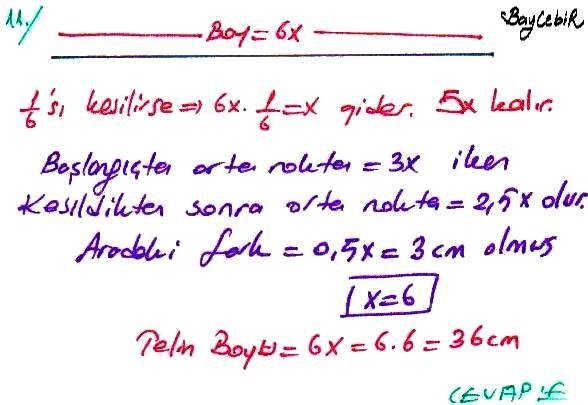 11./ BayCebiR
Boy = 6x
1/6's, kesilirse ⇒ 6x . 1/6 = x gider. 5x kalır.
Başlangıçta orta nokta = 3x iken
Kesildikten sonra orta nokta = 2,5x olur.
Aradaki fark = 0,5x = 3 cm olmuş
x=6
Telin Boyu = 6x = 6.6 = 36 cm
CEVAP : E